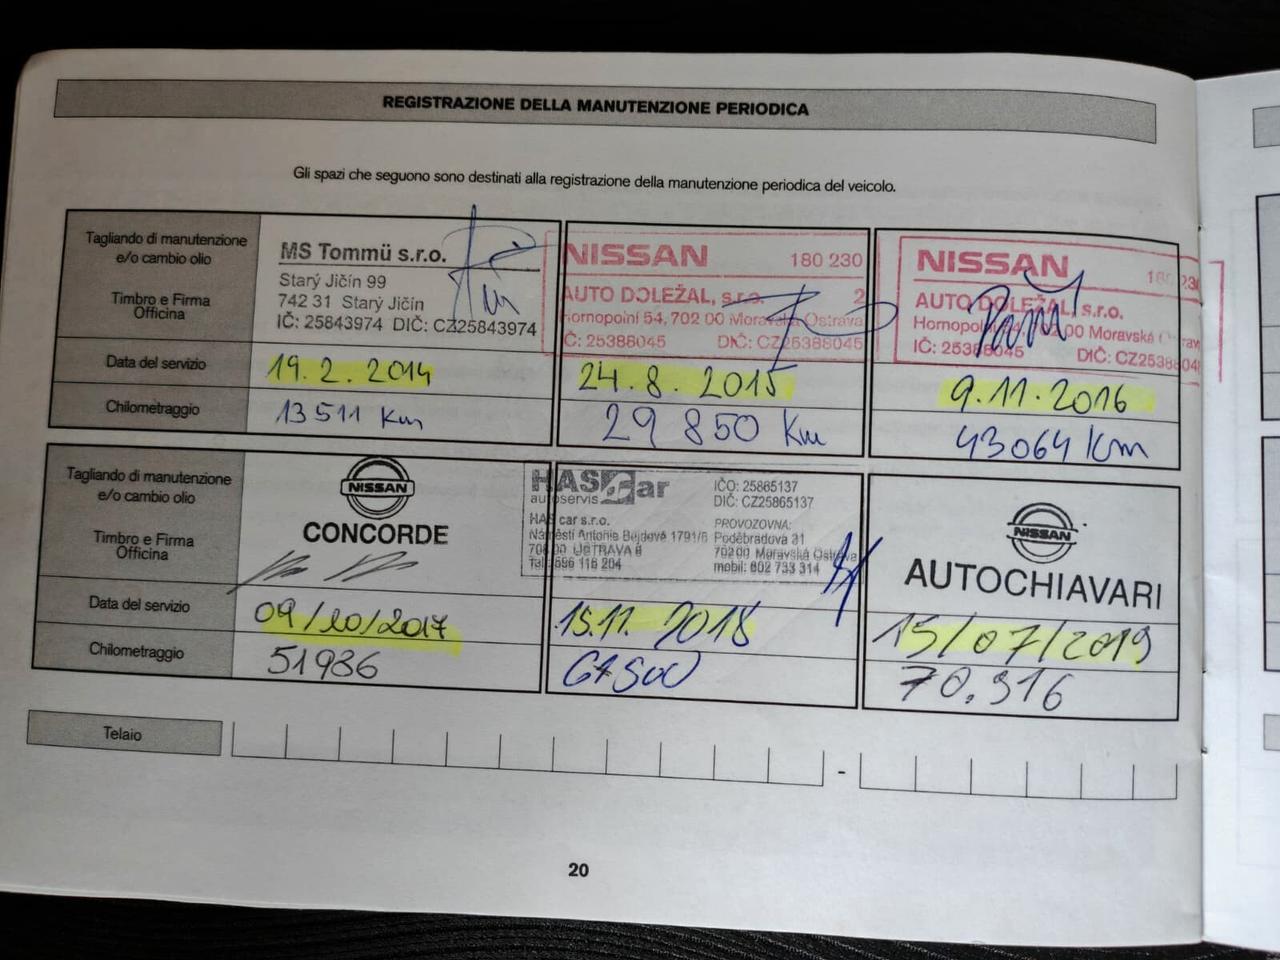 REGISTRAZIONE DELLA MANUTENZIONE PERIODICA
Gli spazi che seguono sono destinati alla registrazione della manutenzione periodica del veicolo.
Tagliando di manutenzione
e/o cambio olio
Timbro e Firma
Officina
MS Tommü s.r.o.
Starý Jičín 99
742 31 Starý Jičín
IČ: 25843974 DIČ: CZ25843974
NISSAN 180 230
AUTO DOLEŽAL, s.r.o. 2
Hornopolní 54, 702 00 Moravská Ostrava
Č: 25388045 DIČ: CZ25388045
NISSAN 180 230
AUTO DOLEŽAL, s.r.o.
Hornopolní 54, 702 00 Moravská
IČ: 25388045 DIČ: CZ2538804
Data del servizio
19.2.2014
24.8.2015
9.11.2016
Chilometraggio
13511 Km
29 850 Km
43064 Km
Tagliando di manutenzione
e/o cambio olio
Timbro e Firma
Officina
NISSAN
CONCORDE
HAS car
autoservis
HAS car s.r.o.
Náměstí Antonie Bejdové 1791/6
708 00 OSTRAVA 8
Tel.: 596 116 204
IČO: 25865137
DIČ: CZ25865137
PROVOZOVNA:
Poděbradova 31
70200 Moravská Ostrava
mobil: 602 733 314
NISSAN
AUTOCHIAVARI
Data del servizio
09/10/2017
15.11.2018
15/07/2019
Chilometraggio
51936
70.316
Telaio
-
20